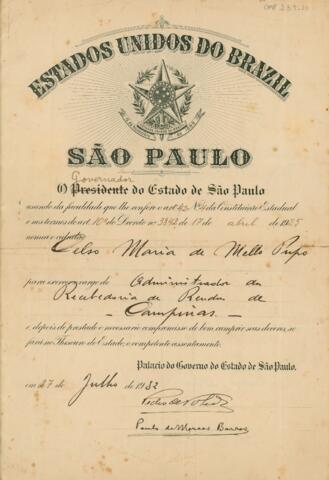 ESTADOS UNIDOS DO BRAZIL
SÃO PAULO
Governador
O Presidente do Estado de São Paulo
usando da faculdade que lhe confere o art. 42 Nº da Constituição Estadual
e nos termos do art. 10 do Decreto nº 3892 de 17 de abril de 1925
nomea o cidadão
Celso Maria de Mello Pupo
para exercer o cargo de Administrador da
Recebedoria de Rendas de
- Campinas -
e, depois de prestado o necessario compromisso de bem cumprir seus deveres, se
fará no Thesouro do Estado, o competente assentamento.
Palacio do Governo do Estado de São Paulo,
em 27 de Julho de 1932
Pedro de Toledo
Paulo de Moraes Barros